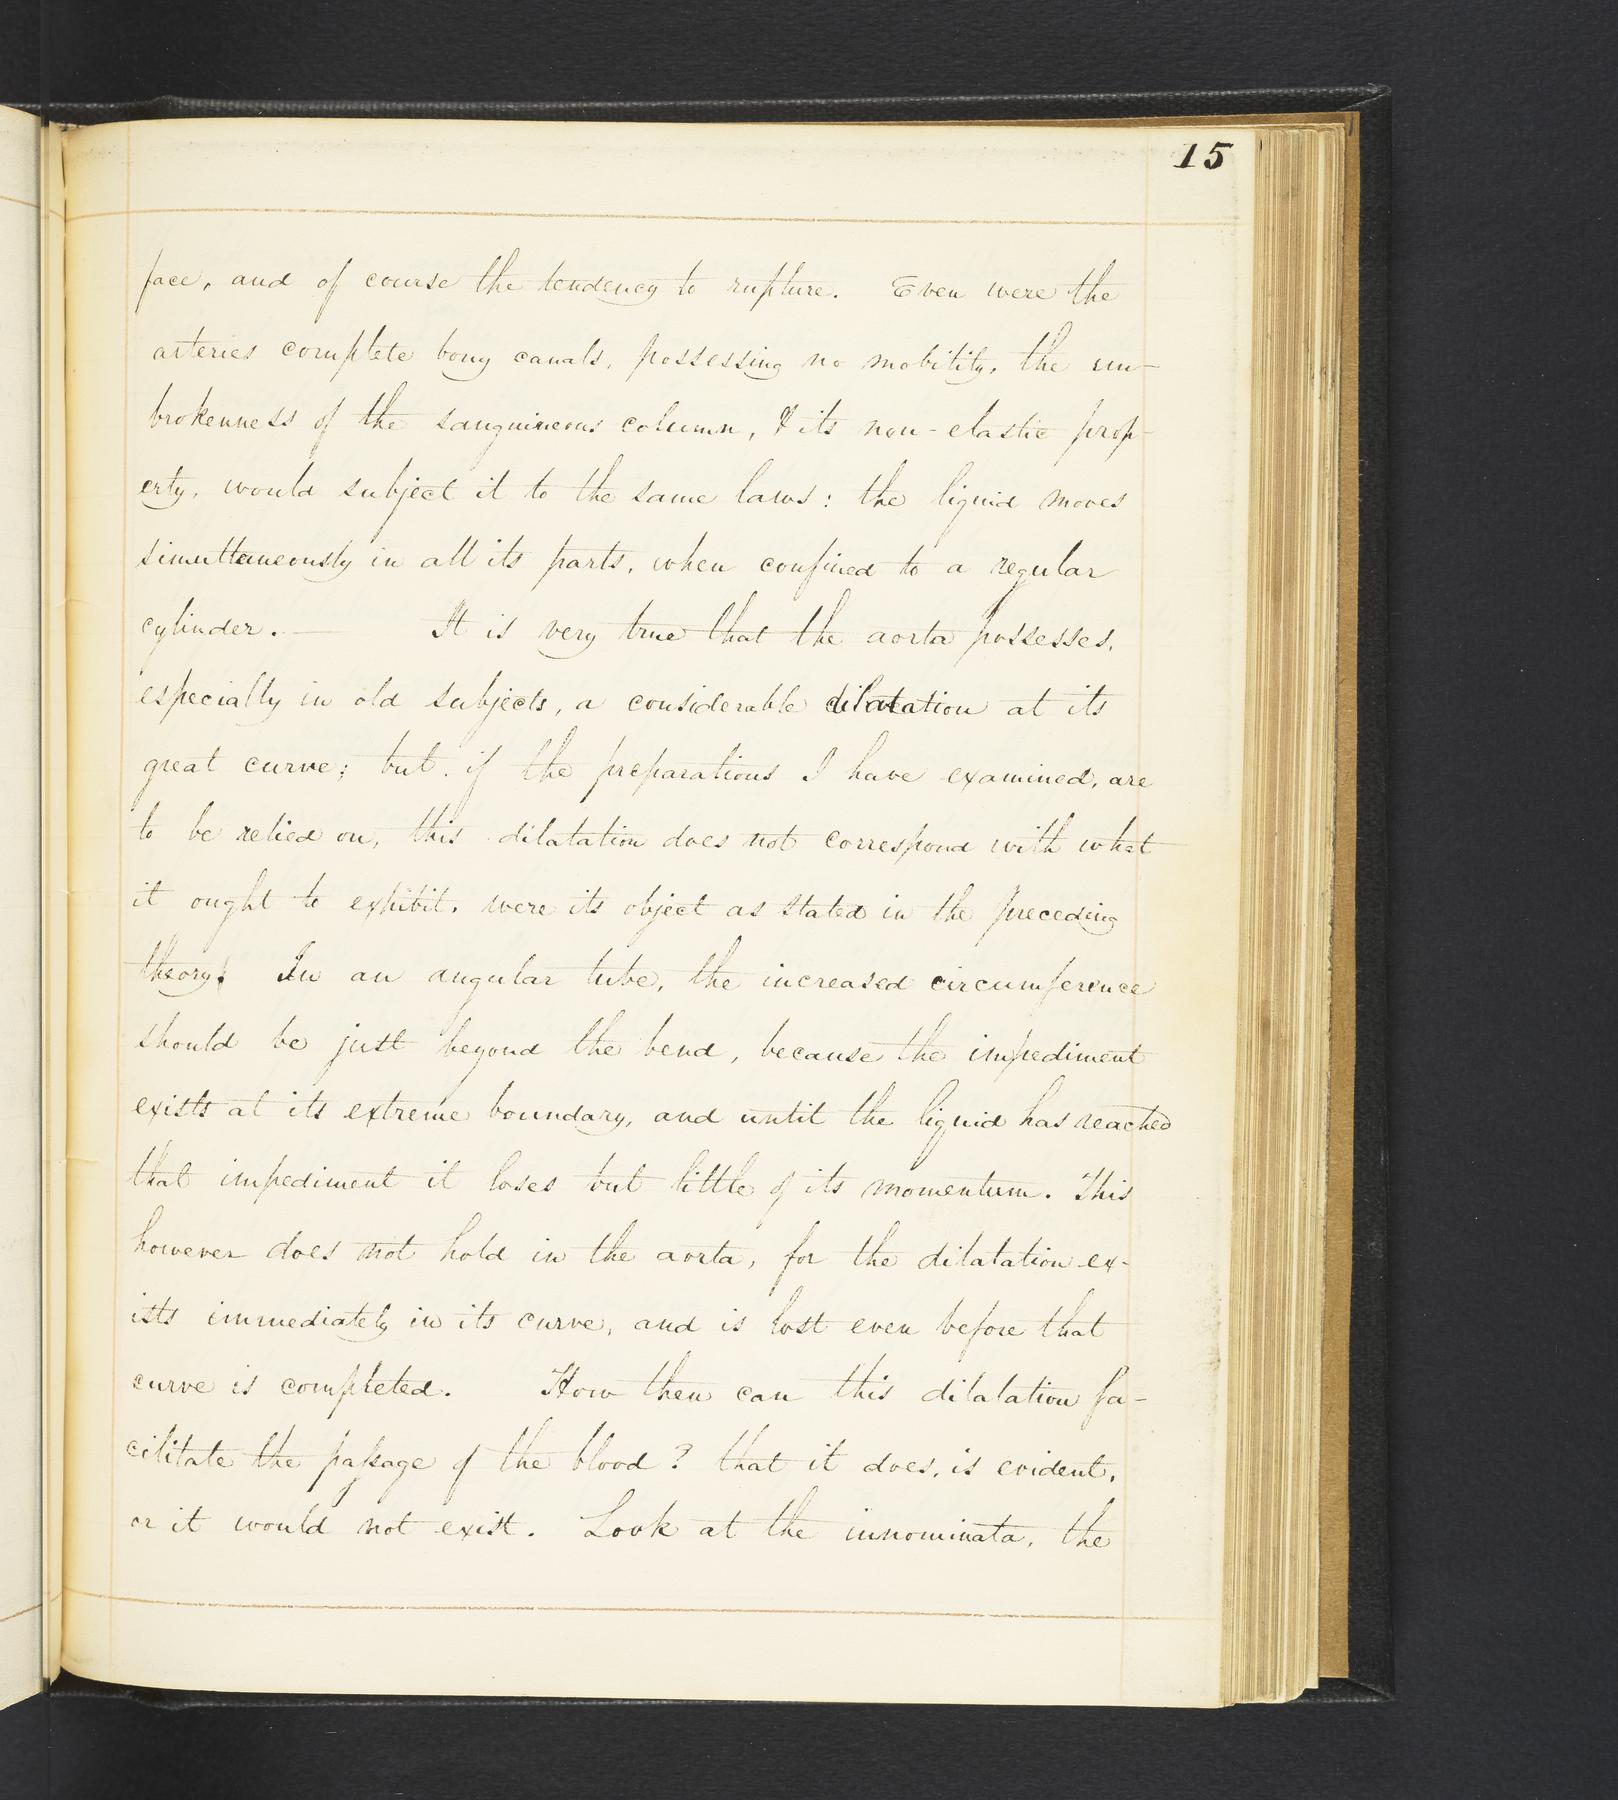 15
face, and of course the tendency to rupture. Even were the
arteries complete bony canals, possessing no mobility, the un-
brokenness of the sanguineous column, & its non-elastic prop-
erty, would subject it to the same laws: the liquid moves
simultaneously in all its parts, when confined to a regular
cylinder. — It is very true that the aorta possesses,
especially in old subjects, a considerable dilatation at its
great curve; but if the preparations I have examined, are
to be relied on, this dilatation does not correspond with what
it ought to exhibit, were its object as stated in the preceding
theory. In an angular tube, the increased circumference
should be just beyond the bend, because the impediment
exists at its extreme boundary, and until the liquid has reached
that impediment it loses but little of its momentum. This
however does not hold in the aorta, for the dilatation ex-
ists immediately in its curve, and is lost even before that
curve is completed. How then can this dilatation fa-
cilitate the passage of the blood? that it does, is evident,
or it would not exist. Look at the innominata, the